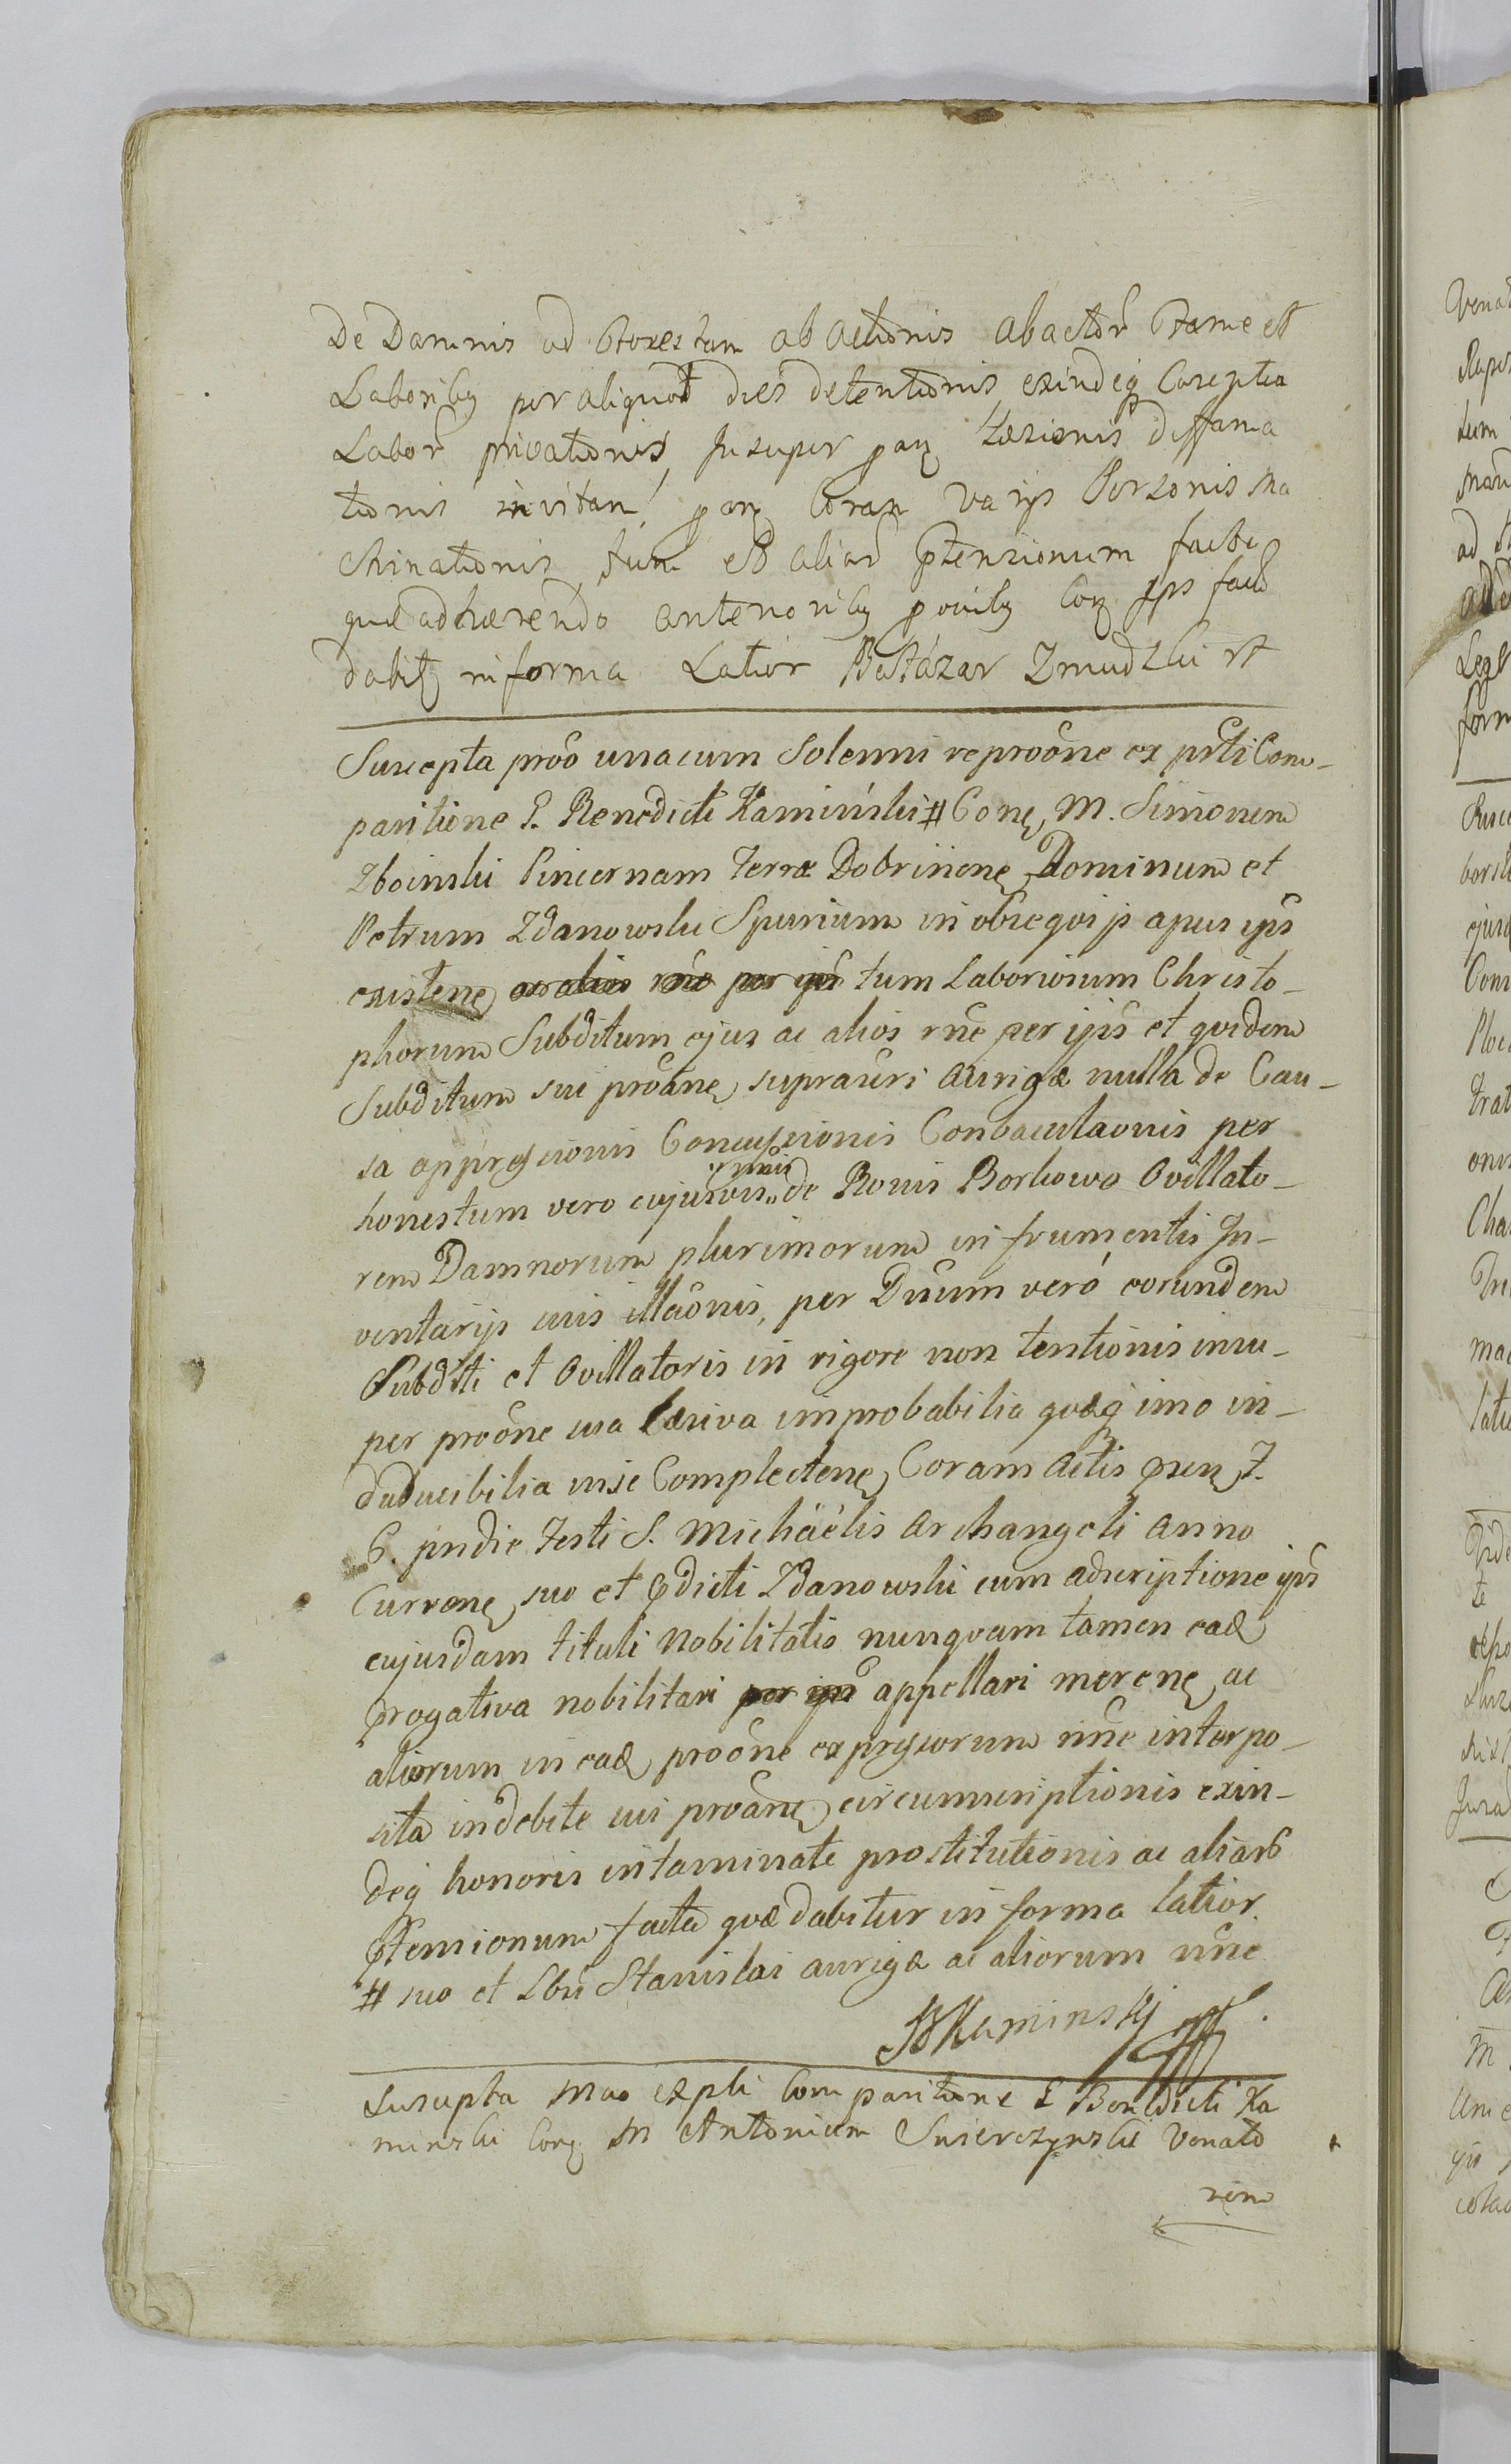 De Damnis ad Forestam ab Actionis abactor Fame et
Laboriby per aliquot dies detentionis exindeq Carentia
Labor privationis Insuper Læsionis diffama
tionis invitan Coram Varijs Personis Ma
chinationis tum et aliar ptensionum facta
quæ adhærendo anterioriby coq Ips fact
dabitz in forma Latior Baltázar Zmudzki rt
Suscepta proõ unacum Solenni reproõne ex prti Com-
paritione G. Benedicti Kaminski # Conę M. Simonem
Zboinski Pincernam Terræ Dobrinenę Dominum et
Petrum Zdanowski Spurium in obsequijs apus ips
existenę tum Laboriosum Christo-
phorum Subditum ejus ac alios rñe per ips et quidem
Subditum sui proãnę suprascri Aurigæ nulla de Cau-
sa oppressionis Concussionis Conbaculaonis per
honestum vero cujusvis de Bonis Borkowo Ovillato-
rem Damnorum plurimorum in frumentis In-
ventarijs suis illãonis, per Dnum veró eorundem
Subditi et Ovillatoris in rigore non tentionis insu-
per proõne sua læsiva improbabilia quæq imo in-
duducibilia in se Complectenę Coram Actis
6. pridie Festi S. Michäélis Archangeli Anno
Currenę suo et pdicti Zdanowski cum adscriptione ips
cujusdam tituli Nobilitatis nunquam tamen eadę
progativa nobilitari appellari merenę ac
aliorum in eadę proõne expressorum nñe interpo-
sita indebite sui proãnę circumscriptionis exin-
deq honoris intaminate prostitutionis ac aliar
ptensionum facta quæ dabitur in forma latior.
# suo et Lbri Stanislai aurigæ ac aliorum nñe
BKaminskj
Suscepta Mao expli Comparitione G Benedicti Ka
minski Conę M Antonium Swierczynski Venato
rem